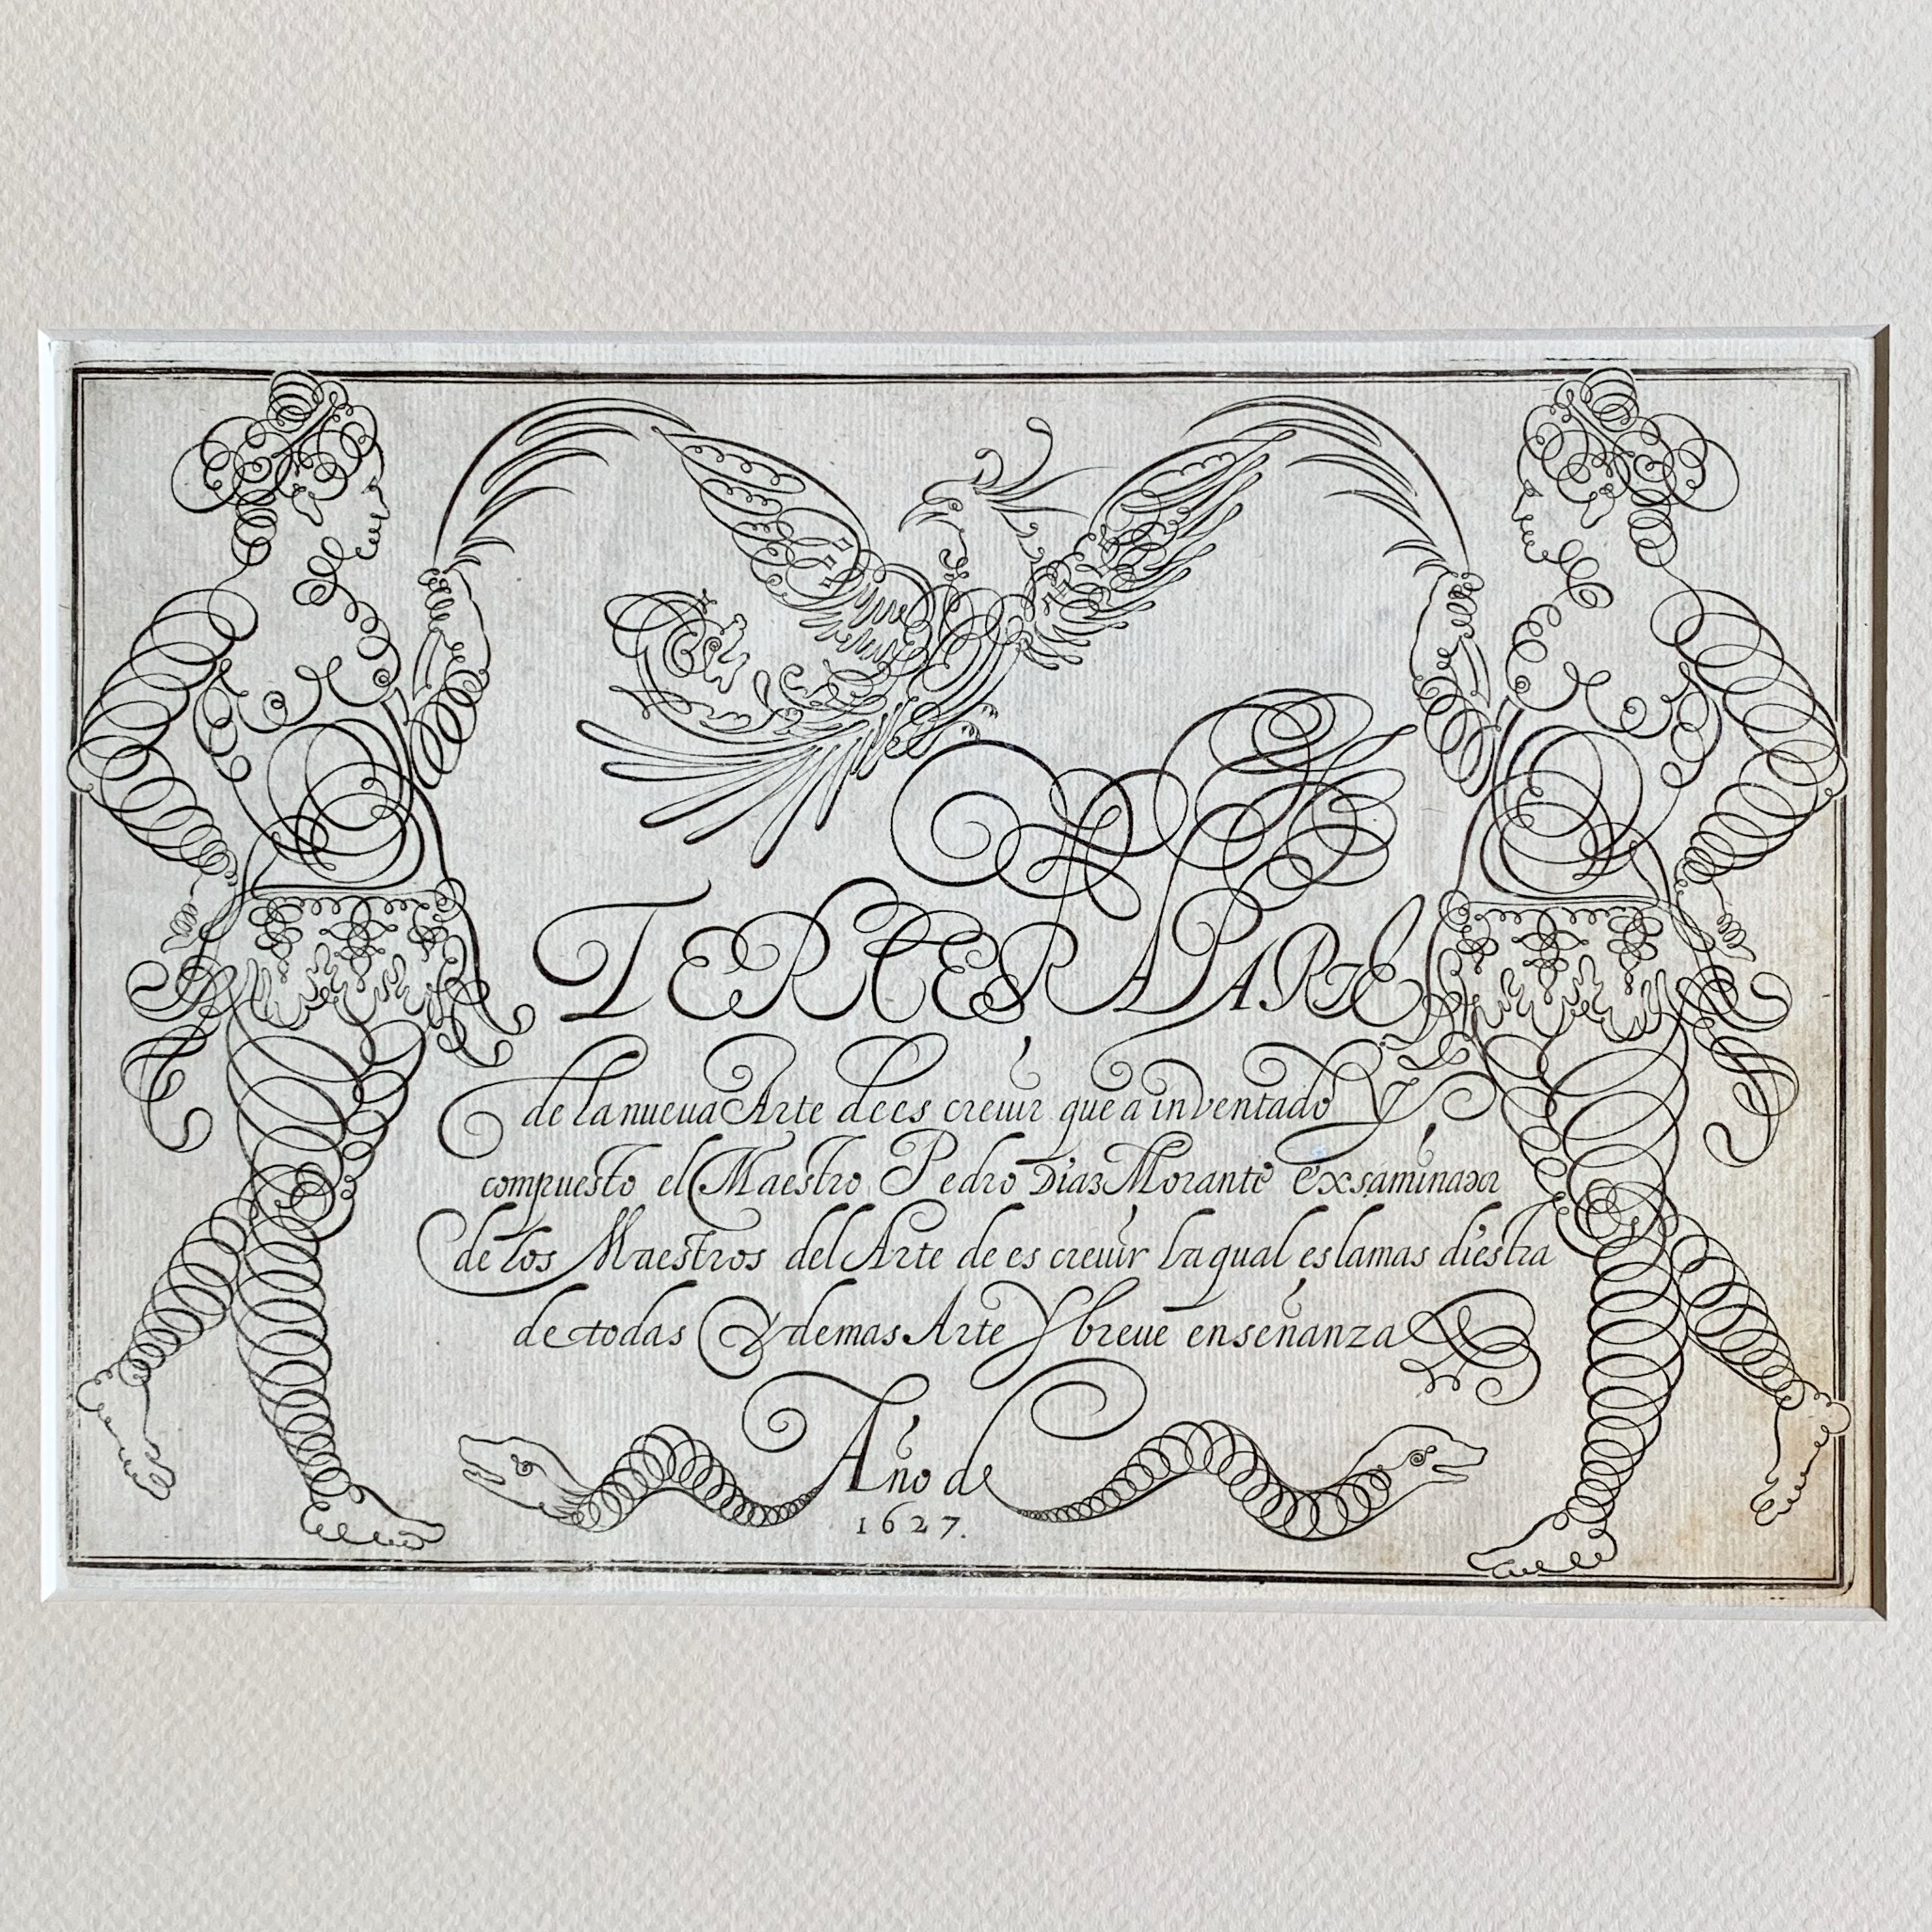 TERCERA PARTE
de la nueua Arte de es creuir que a inventado Y
compuesto el Maestro Pedro Diaz Morante exsaminador
de los Maestros del Arte de es creuir la qual es la mas diestra
de todas Y demas Arte Y breue enseñanza
Año de
1627.